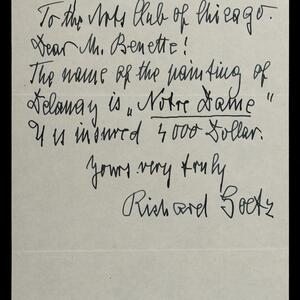 To the Arts Club of Chicago.
Dear Mr. Benette!
The name of the painting of
Delaunay is „Notre Dame"
It is insured 4000 Dollar.
Yours very truly
Richard Goetz